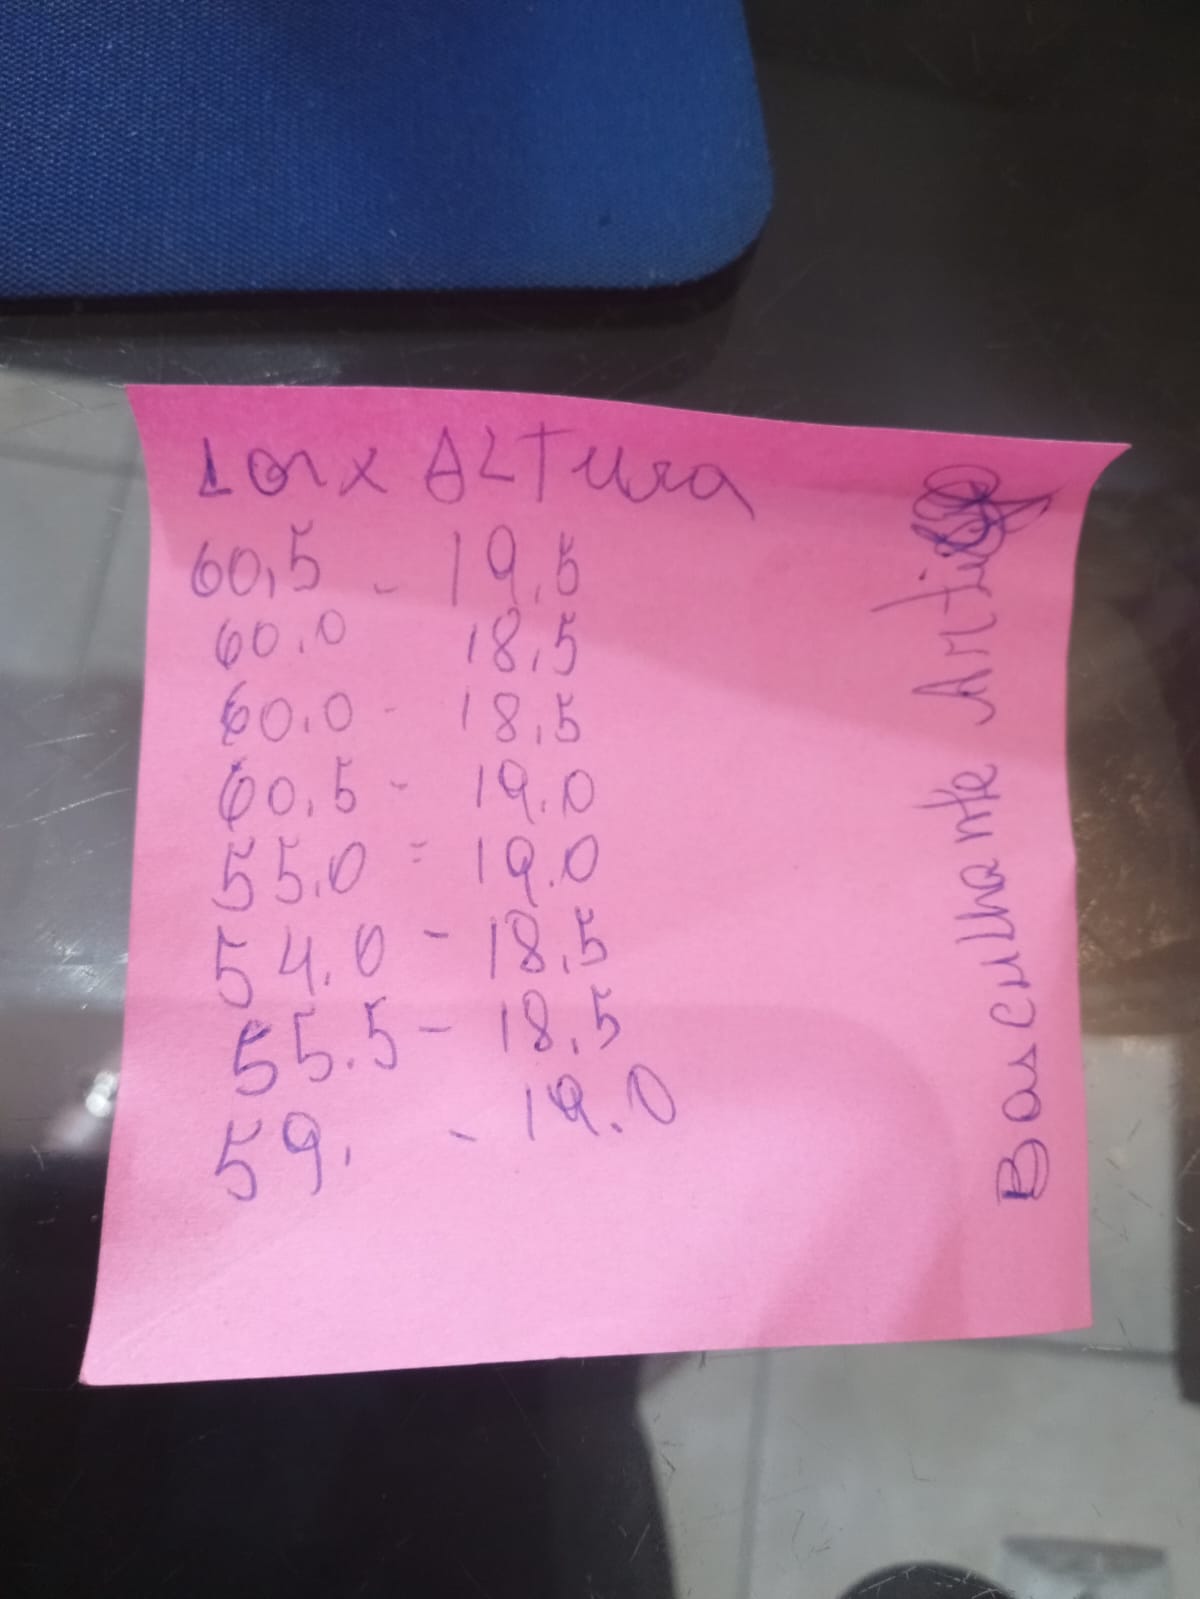 Lar x ALTura
60,5 - 19.5
60.0 18,5
60.0 - 18,5
60,5 - 19.0
55.0 = 19.0
54.0 - 18,5
55.5 - 18,5
59. - 19.0
Basculhante